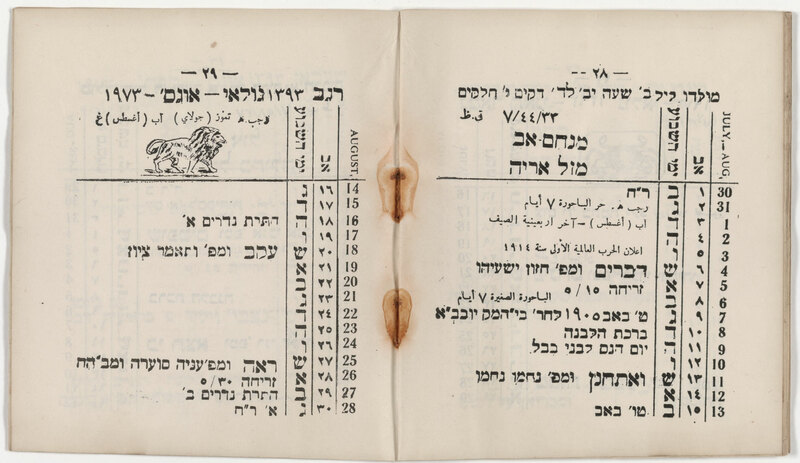 — ٢٨ —
מולדו ליל ב׳ שעה יב׳ לד׳ דקים ו׳ חלקים
٧/٤٤/٣٣ ق.ظ
מנחם-אב
מזל אריה
ימי השבוע אב JULY — AUG.
ר״ח ב ١ 30
رجب ه‍. حر الباحورة ٧ أيام ג ٢ 31
آب (أغسطس) – آخر اربعينية الصيف ד ٣ 1
ה ٤ 2
اعلان الحرب العالمية الأولى سنة ١٩١٤ ו ٥ 3
דברים ומפ׳ חזון ישעיהו ש ٦ 4
זריחה ١٥/٥ א ٧ 5
الباحورة الصغيرة ٧ أيام ב ٨ 6
ט׳ באב ١٩٠٥ לחר׳ בי״המק יוכב״א ג ٩ 7
ברכת הלבנה ד ١٠ 8
יום הנס לבני בבל ה ١١ 9
ו ١٢ 10
ואתחנן ומפ׳ נחמו נחמו ש ١٣ 11
א ١٤ 12
טו׳ באב ב ١٥ 13
— ٢٩ —
רגב ١٣٩٣ ג׳ולאי — אוגס׳ — ١٩٧٣
رجب ه‍ تموز (جولاي) آب (أغسطس) غ
ימי השבוע אב AUGUST.
ג ١٦ 14
ד ١٧ 15
התרת נדרים א׳ ה ١٨ 16
ו ١٩ 17
עקב ומפ׳ ותאמר ציון ש ٢٠ 18
א ٢١ 19
ב ٢٢ 20
ג ٢٣ 21
ד ٢٤ 22
ה ٢٥ 23
ו ٢٦ 24
ראה ומפ׳ עניה סוערה ומב״הח ש ٢٧ 25
זריחה ٣٠/٥ א ٢٨ 26
התרת נדרים ב׳ ב ٢٩ 27
א׳ ר״ח ג ٣٠ 28